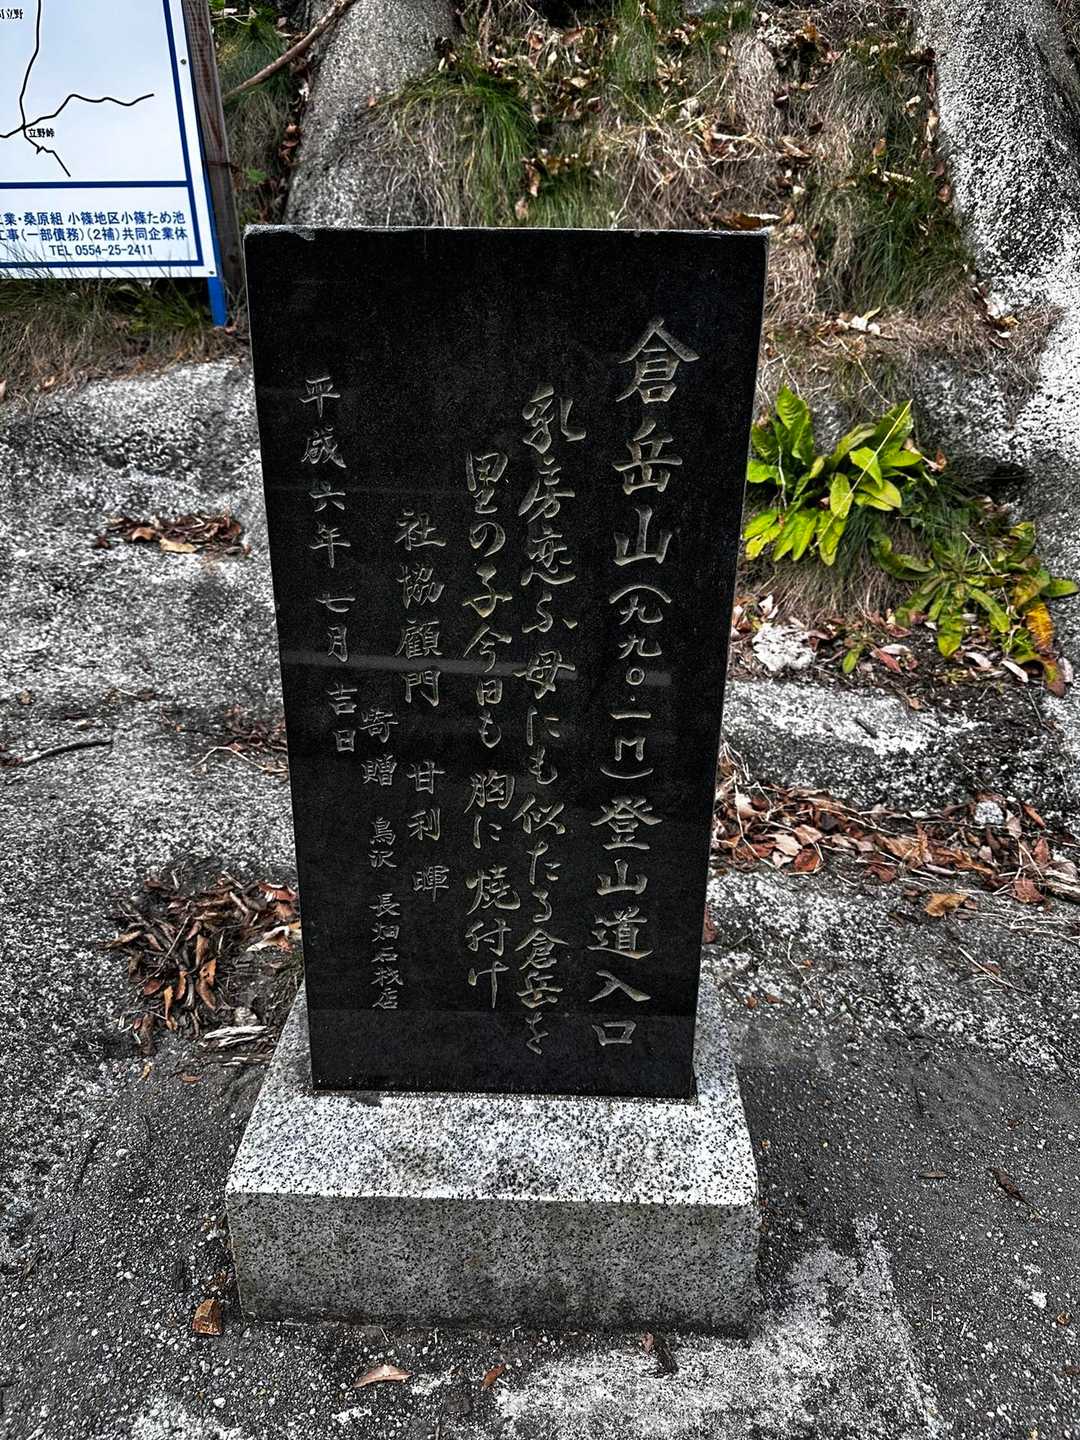 倉岳山(九九〇.一M)登山道入口
乳房恋ふ母にも似たる倉岳を
里の子今日も胸に焼付け
社協顧問 甘利暉
寄贈 鳥沢 長畑石材店
平成六年七月吉日
立野峠
業・桑原組 小篠地区小篠ため池
工事(一部債務)(2補)共同企業体
TEL 0554-25-2411